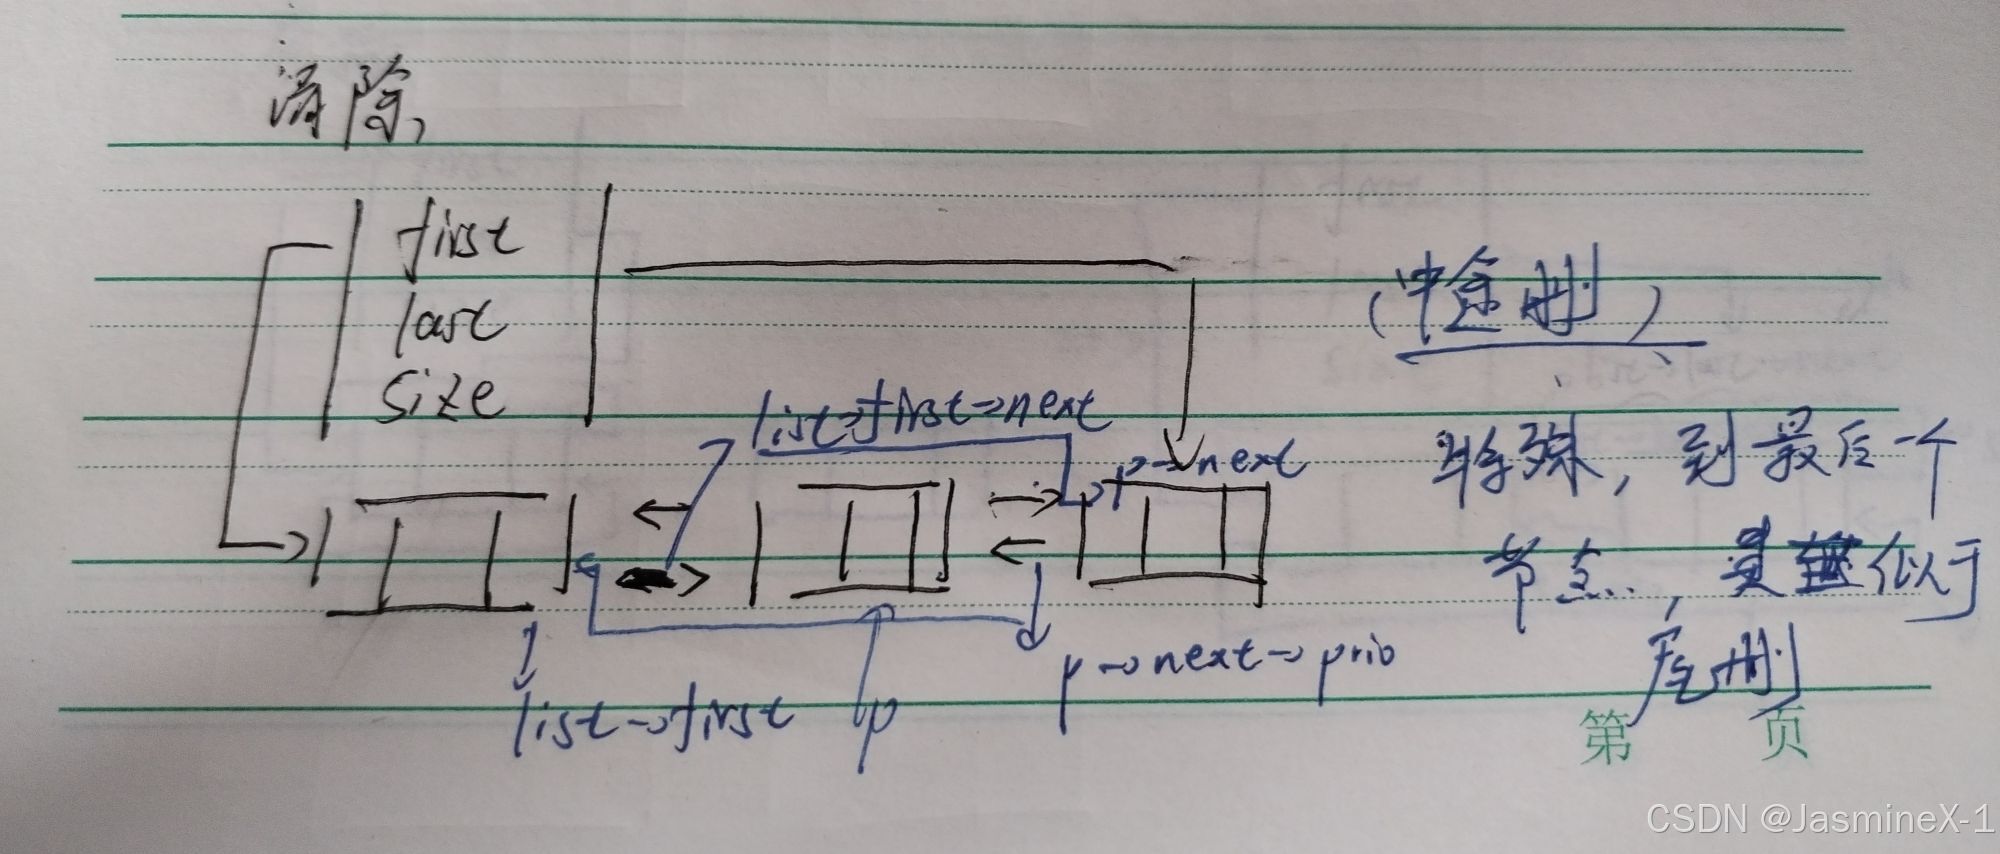 清除
first
last
size
(中途删)
list→first→next
p→next
特殊，到最后一个
节点，类似于
尾删
p→next→prio
list→first
p
第 页
CSDN @JasmineX-1